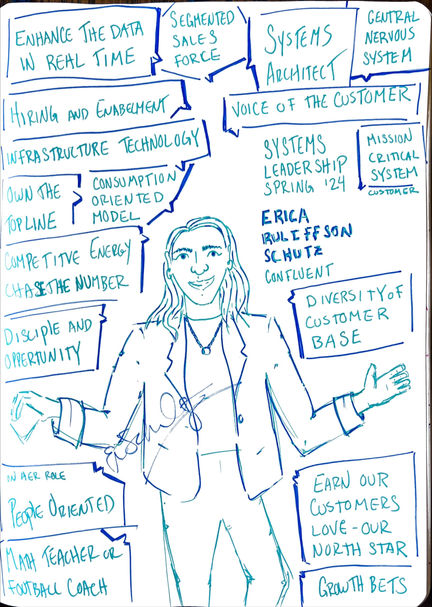 ENHANCE THE DATA
IN REAL TIME
SEGMENTED
SALES
FORCE
SYSTEMS
ARCHITECT
CENTRAL
NERVOUS
SYSTEM
HIRING AND ENABELMENT
VOICE OF THE CUSTOMER
INFRASTRUCTURE TECHNOLOGY
SYSTEMS
LEADERSHIP
SPRING '24
MISSION
CRITICAL
SYSTEM
CUSTOMER
OWN THE
TOP LINE
CONSUMPTION
ORIENTED
MODEL
ERICA
RULIFFSON
SCHUTZ
CONFLUENT
COMPETITVE ENERGY
CHASE THE NUMBER
DIVERSITY OF
CUSTOMER
BASE
DISCIPLE AND
OPPERTUNITY
IN HER ROLE
PEOPLE ORIENTED
EARN OUR
CUSTOMERS
LOVE-OUR
NORTH STAR
MATH TEACHER OR
FOOTBALL COACH
GROWTH BETS